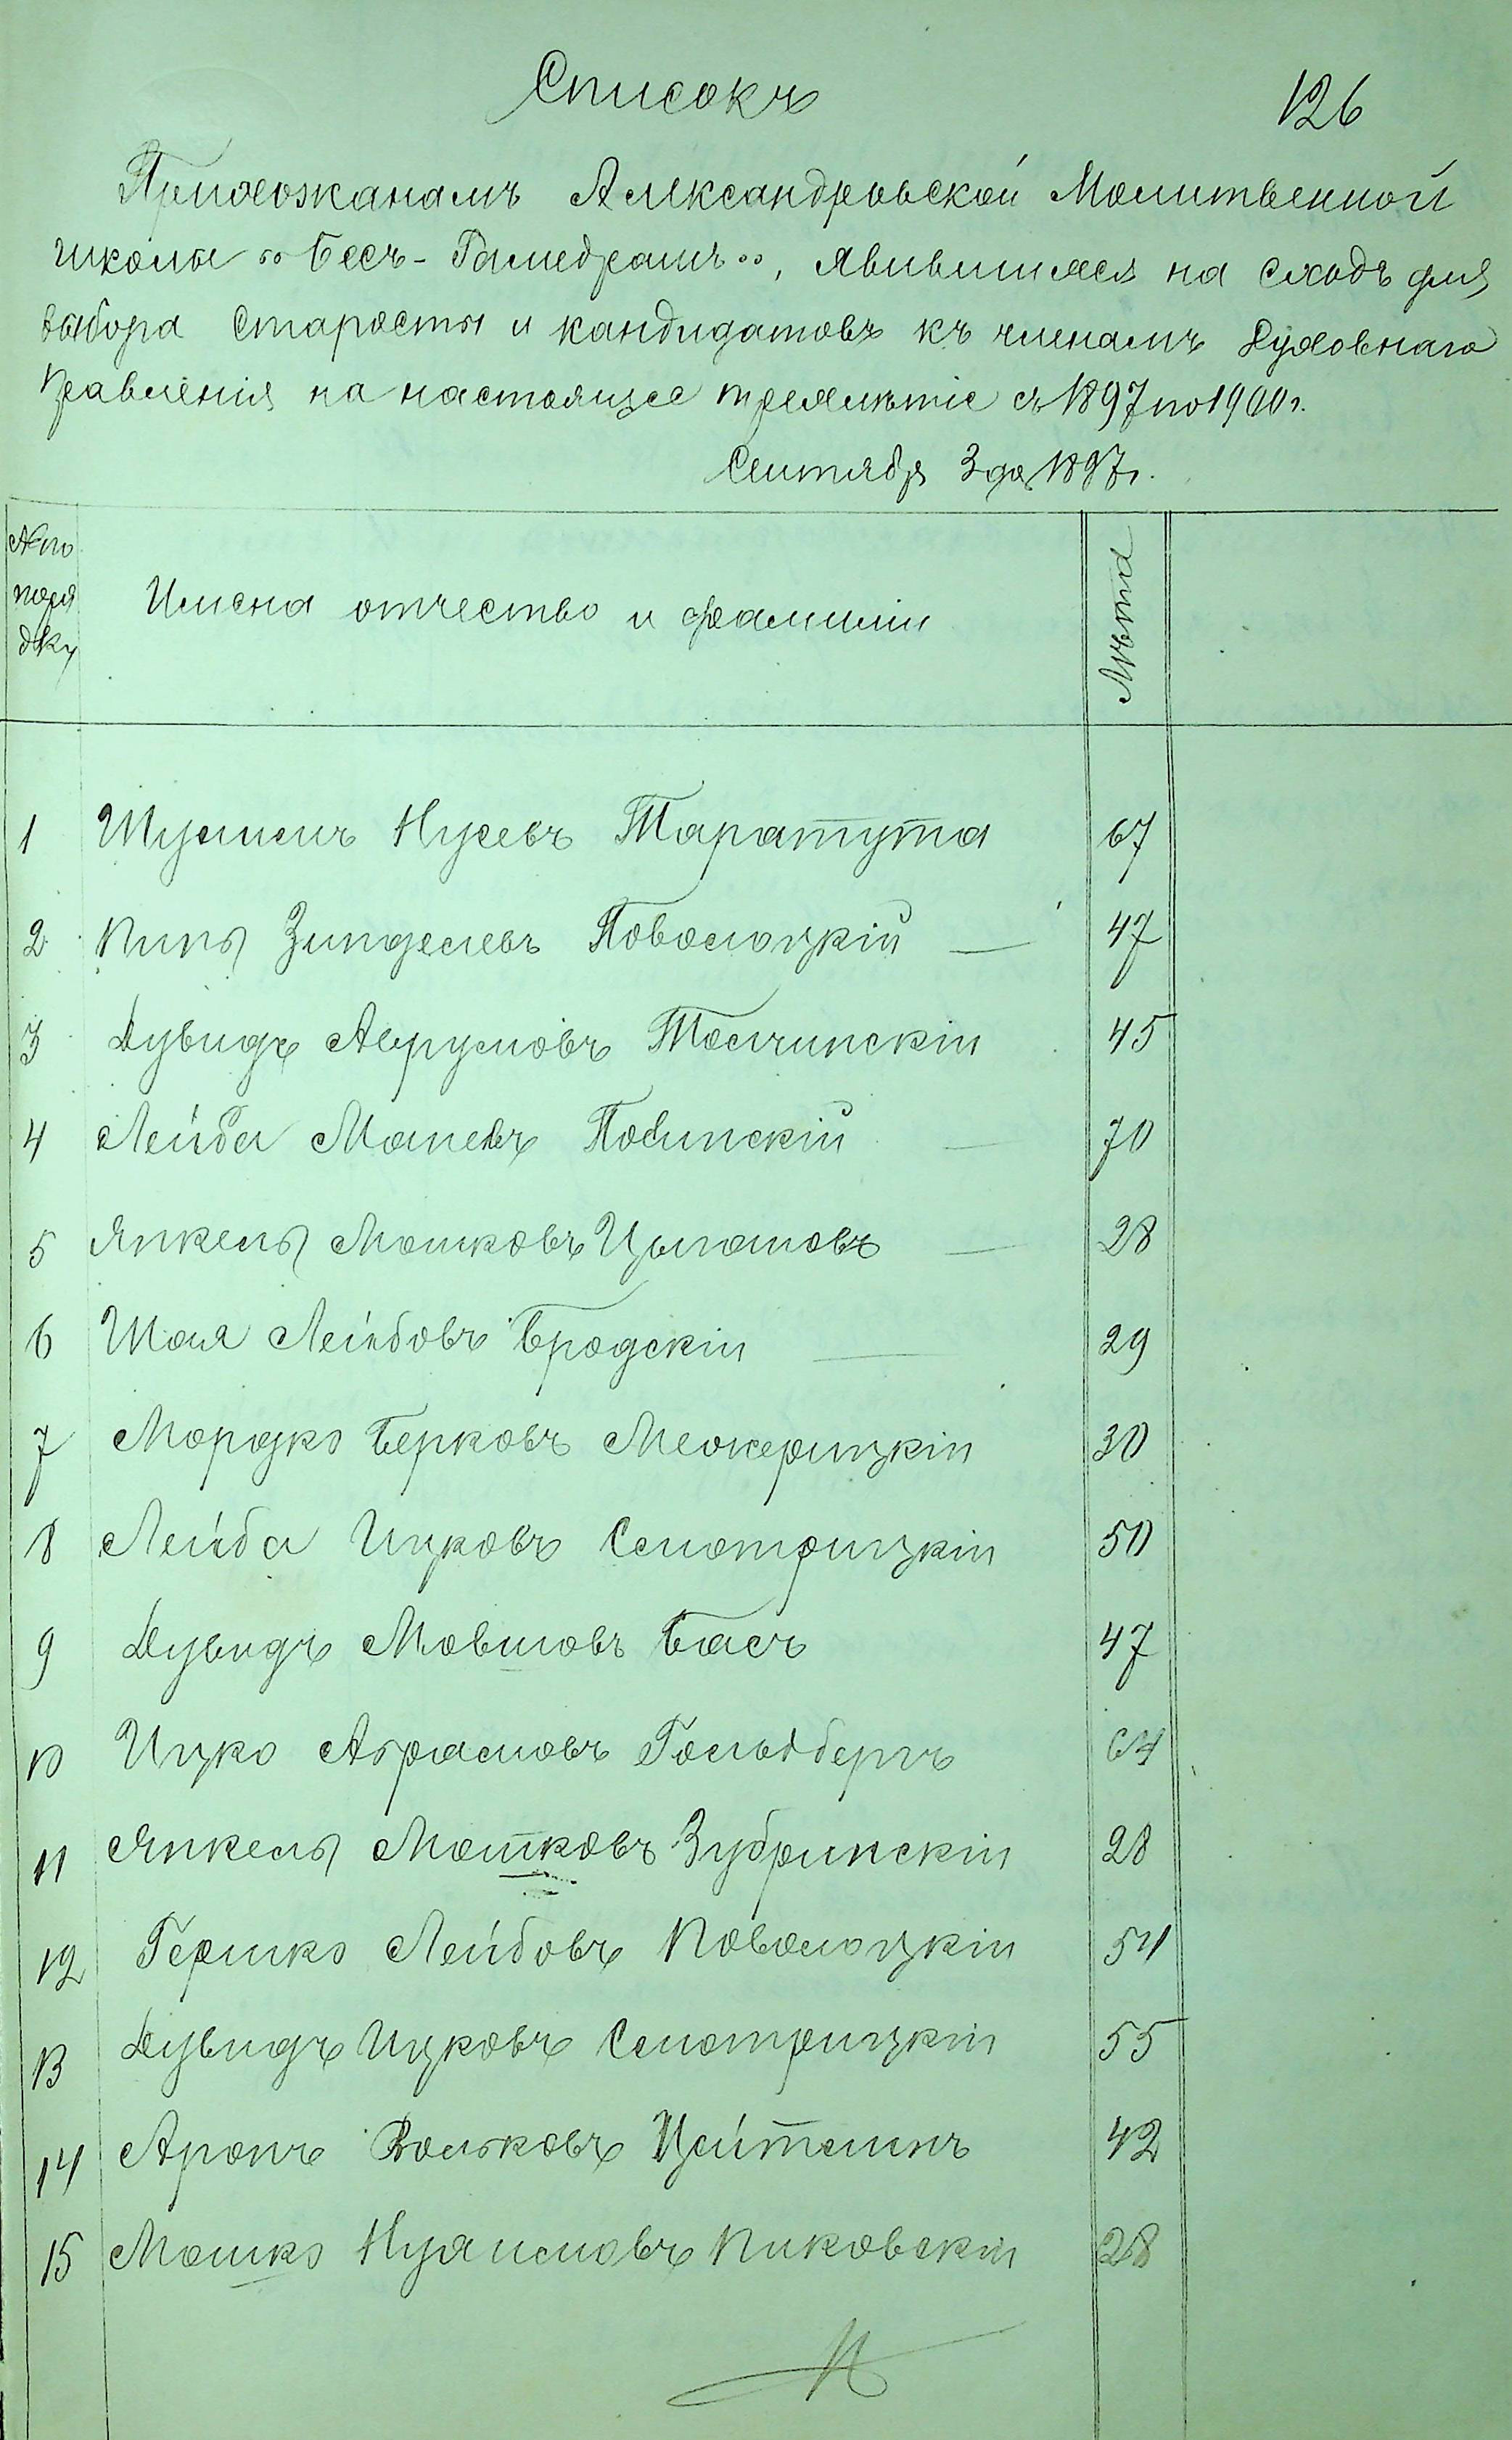 Списокъ
126
Прихожанамъ Александровской Молитвенной
школы „Бесъ-Гамедрашъ“, явившимся на сходъ для
выбора старосты и кандидатовъ къ членамъ Духовнаго
Правленія на настоящее трехлѣтіе съ 1897 по 1900 г.
Сентября 3 дня 1897 г.
№ по поря дку Имена отчество и фамиліи Лѣта
1 Шулимъ Нусевъ Таратута 67
2 Пиня Зинделевъ Поволоцкій — 47
3 Дувидъ Аврумовъ Толчинскій 45
4 Лейба Маневъ Полинскій — 70
5 Янкель Мошковъ Цыгановъ — 28
6 Шая Лейбовъ Бродскій — 29
7 Мордко Берковъ Межерицкій 30
8 Лейба Ицковъ Смотрицкій 50
9 Дувидъ Мовшовъ Басъ 47
10 Ицко Абрамовъ Гольдбергъ 64
11 Янкель Мошковъ Зубринскій 28
12 Гершко Лейбовъ Поволоцкій 54
13 Дувидъ Ицковъ Смотрицкій 55
14 Аронъ Вольковъ Цейтлинъ 42
15 Мошко Нухимовъ Пиковскій 28